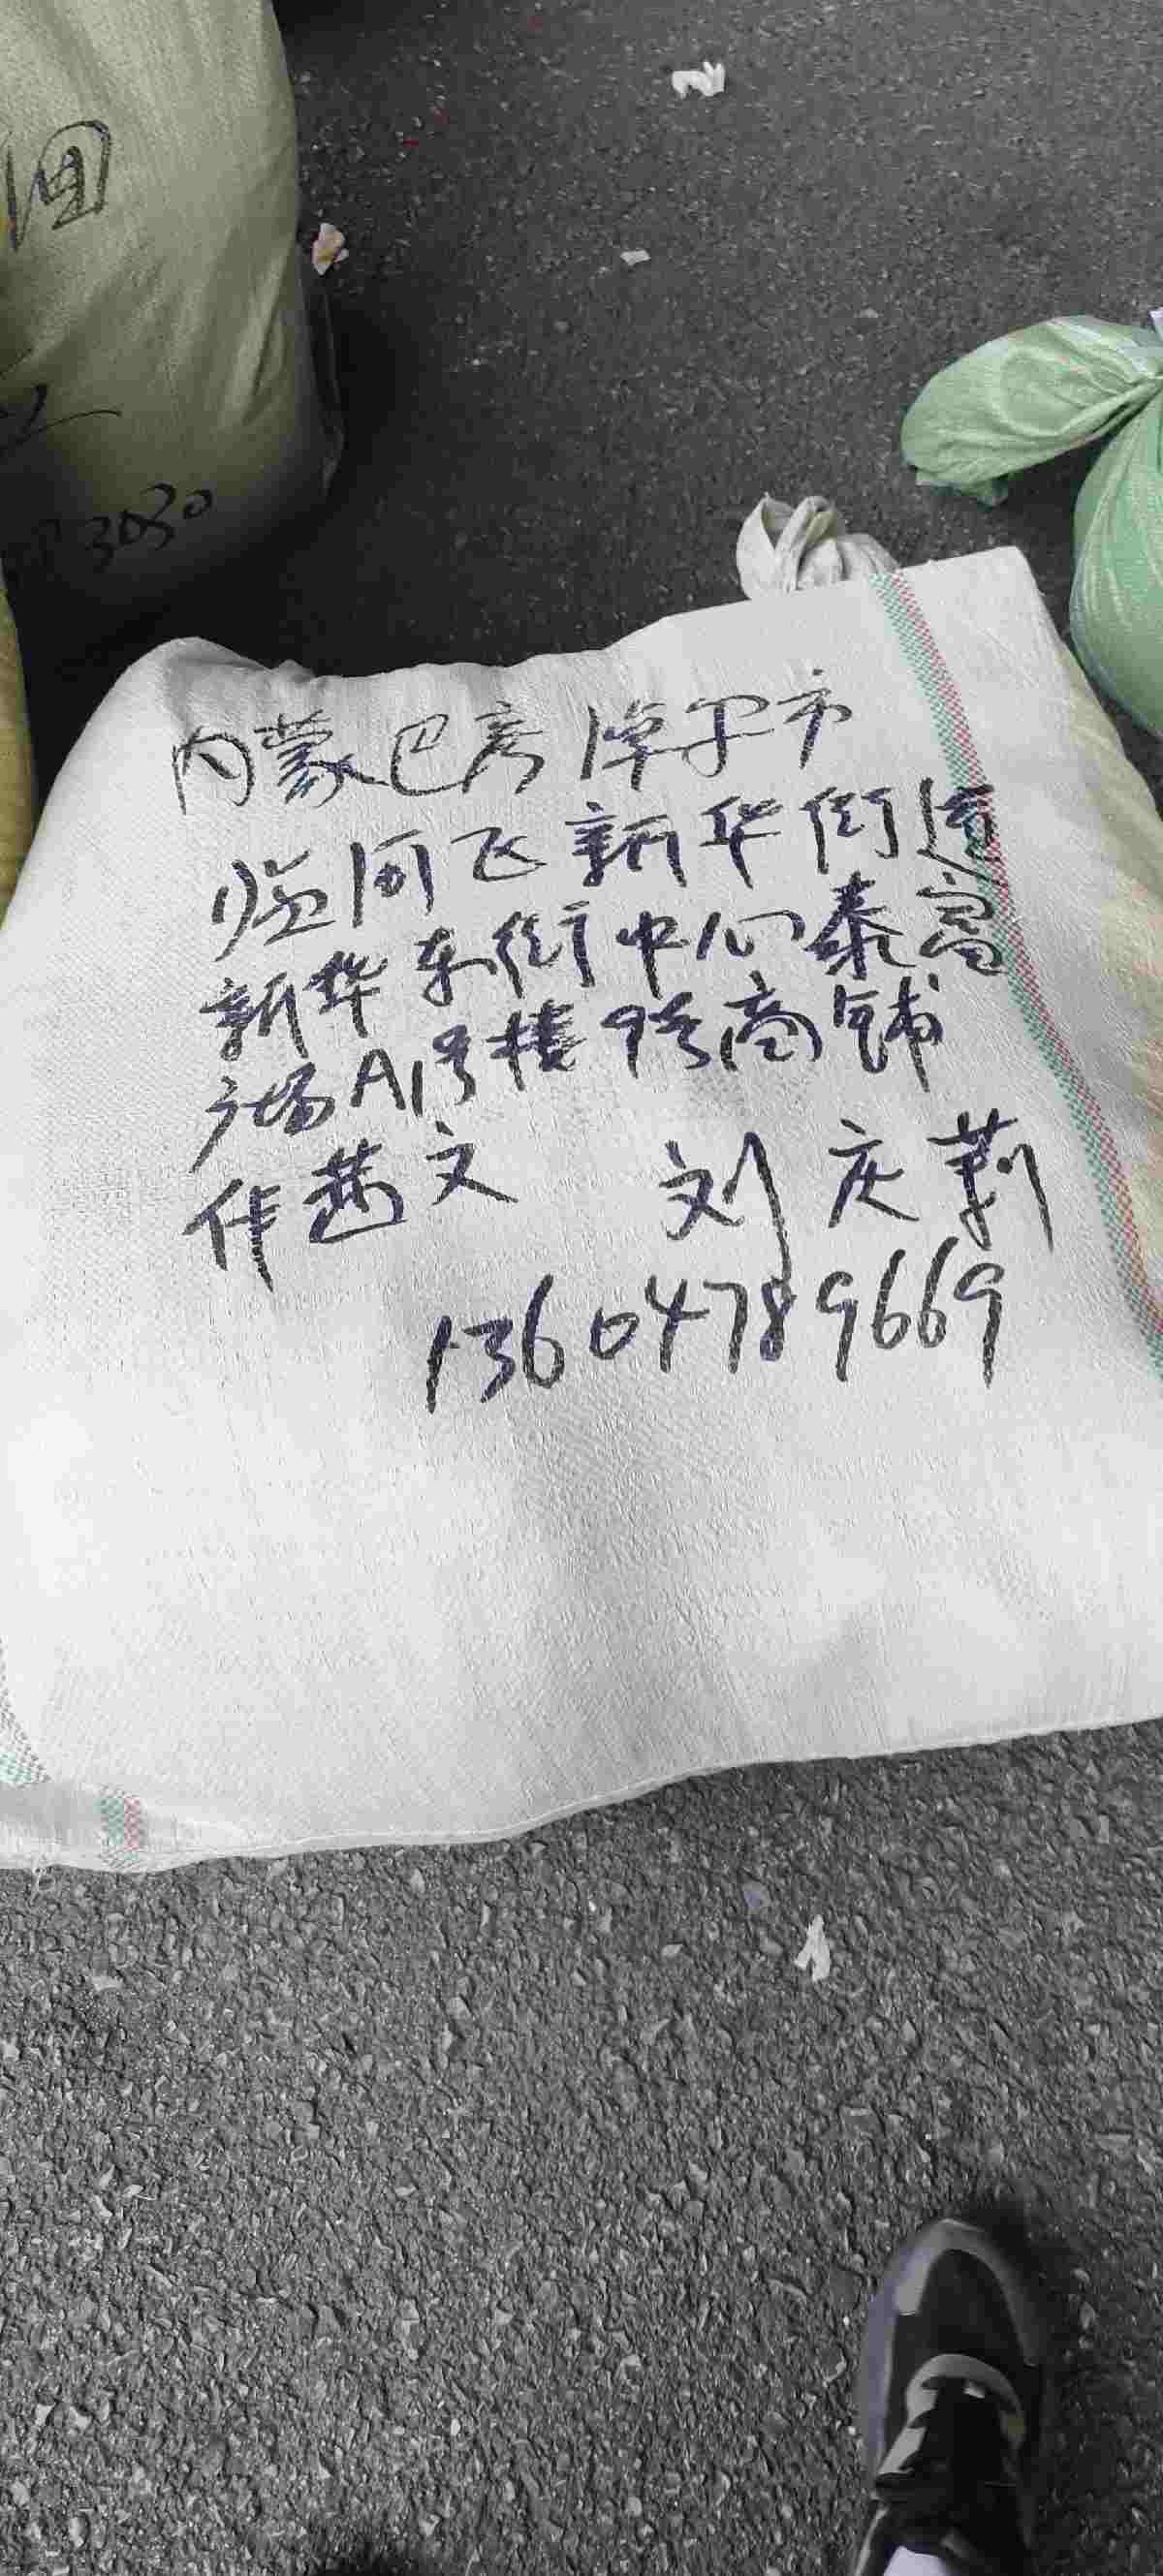 3030
内蒙巴彦淖尔市
临河区新华街道
新华东街中心泰富
广场A1号楼9号商铺
佧茜文 刘庆莉
13604789669